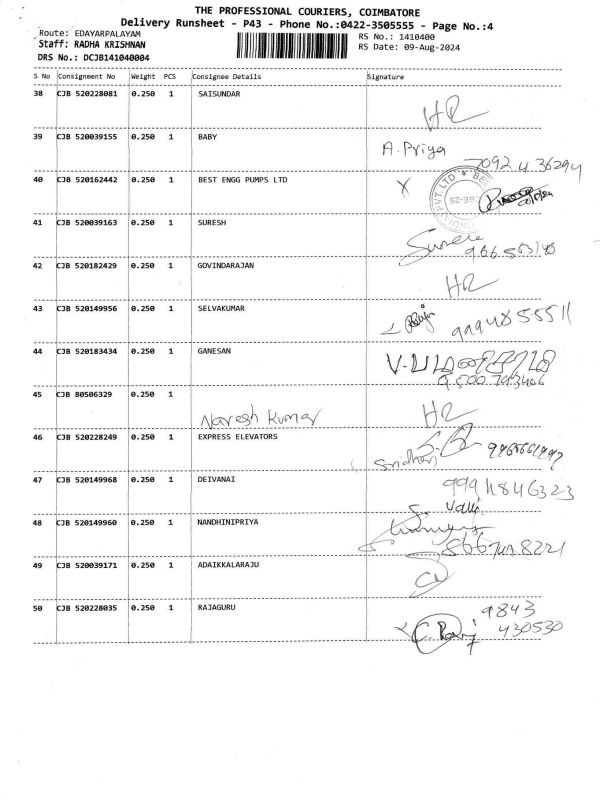 THE PROFESSIONAL COURIERS, COIMBATORE
Delivery Runsheet - P43 - Phone No.:0422-3505555 - Page No.:4
Route: EDAYARPALAYAM
RS No.: 1410400
Staff: RADHA KRISHNAN
RS Date: 09-Aug-2024
DRS No.: DCJB141040004
S No Consignment No Weight PCS Consignee Details Signature
38 CJB 520228081 0.250 1 SAISUNDAR
HR
39 CJB 520039155 0.250 1 BABY
A. Priya
7092 4 36294
40 CJB 520162442 0.250 1 BEST ENGG PUMPS LTD
X
41 CJB 520039163 0.250 1 SURESH
42 CJB 520182429 0.250 1 GOVINDARAJAN
HR
43 CJB 520149956 0.250 1 SELVAKUMAR
Raju 9994855511
44 CJB 520183434 0.250 1 GANESAN
9.500.793406
45 CJB 80506329 0.250 1
Naresh Kumar HR
46 CJB 520228249 0.250 1 EXPRESS ELEVATORS
Sridhar
47 CJB 520149968 0.250 1 DEIVANAI
99911846323
S. Valli
48 CJB 520149960 0.250 1 NANDHINIPRIYA
49 CJB 520039171 0.250 1 ADAIKKALARAJU
50 CJB 520228035 0.250 1 RAJAGURU
9843
430530